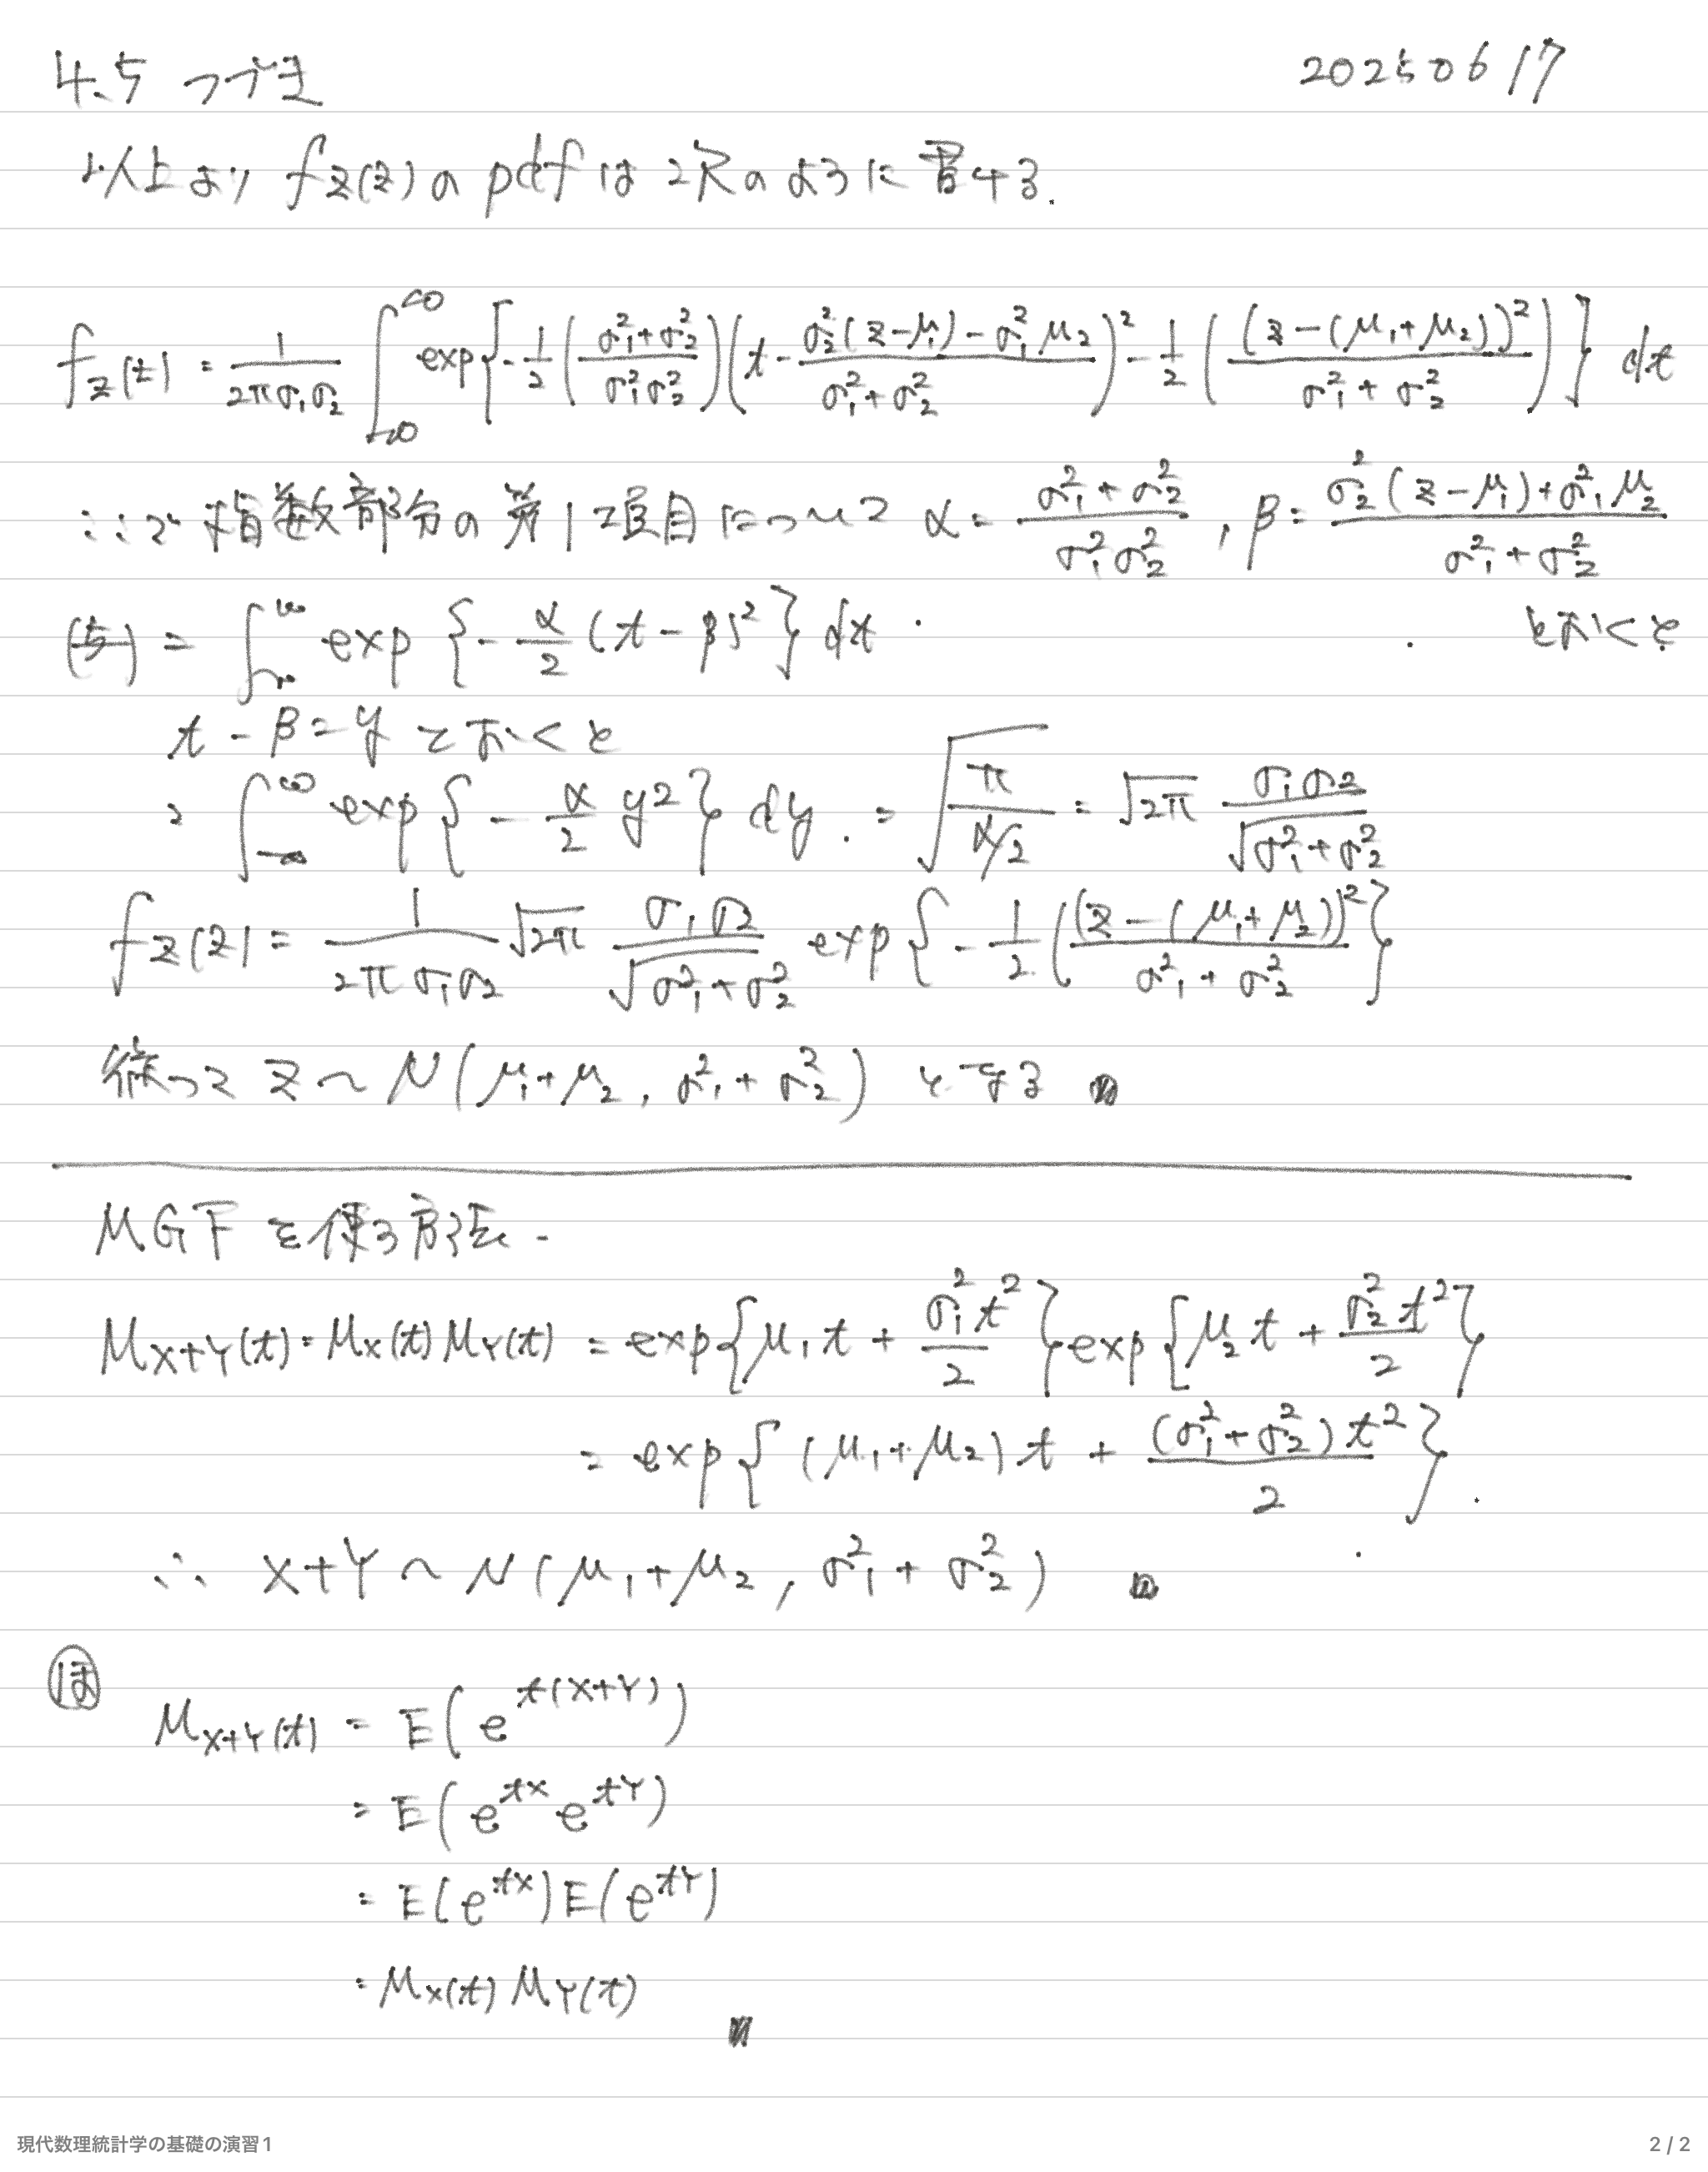 4.5 つづき 20250617
以上より f_Z(z) の pdf は 次のように書ける.
f_Z(z) = \frac{1}{2πσ_1σ_2} \int_{-∞}^{∞} exp{ -\frac{1}{2} ( \frac{σ_1^2+σ_2^2}{σ_1^2σ_2^2} ) ( t - \frac{σ_2^2(z-μ_1) - σ_1^2μ_2}{σ_1^2+σ_2^2} )^2 - \frac{1}{2} ( \frac{(z-(μ_1+μ_2))^2}{σ_1^2+σ_2^2} ) } dt
ここで 指数部分の 第1項目について α = \frac{σ_1^2+σ_2^2}{σ_1^2σ_2^2} , β = \frac{σ_2^2(z-μ_1)+σ_1^2μ_2}{σ_1^2+σ_2^2}
とおくと
(与) = \int_{-∞}^{∞} exp{ -\frac{α}{2} (t-β)^2 } dt
t - β = y とおくと
= \int_{-∞}^{∞} exp{ -\frac{α}{2} y^2 } dy. = \sqrt{\frac{π}{α/2}} = \sqrt{2π} \frac{σ_1σ_2}{\sqrt{σ_1^2+σ_2^2}}
f_Z(z) = \frac{1}{2πσ_1σ_2} \sqrt{2π} \frac{σ_1σ_2}{\sqrt{σ_1^2+σ_2^2}} exp{ -\frac{1}{2} ( \frac{(z-(μ_1+μ_2))^2}{σ_1^2+σ_2^2} }
従って Z ~ N(μ_1+μ_2, σ_1^2+σ_2^2) となる ■
MGF を使う方法.
M_{X+Y}(t) = M_X(t) M_Y(t) = exp{ μ_1t + \frac{σ_1^2t^2}{2} } exp{ μ_2t + \frac{σ_2^2t^2}{2} }
= exp{ (μ_1+μ_2)t + \frac{(σ_1^2+σ_2^2)t^2}{2} }.
∴ X+Y ~ N(μ_1+μ_2, σ_1^2+σ_2^2) ■
ほ
M_{X+Y}(t) = E(e^{t(X+Y)})
= E(e^{tX} e^{tY})
= E(e^{tX}) E(e^{tY})
= M_X(t) M_Y(t)
■
現代数理統計学の基礎の演習1 2 / 2